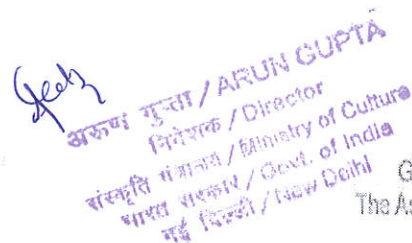 अरुण गुप्ता / ARUN GUPTA
निदेशक / Director
संस्कृति मंत्रालय / Ministry of Culture
भारत सरकार / Govt. of India
नई दिल्ली / New Delhi
G
The As